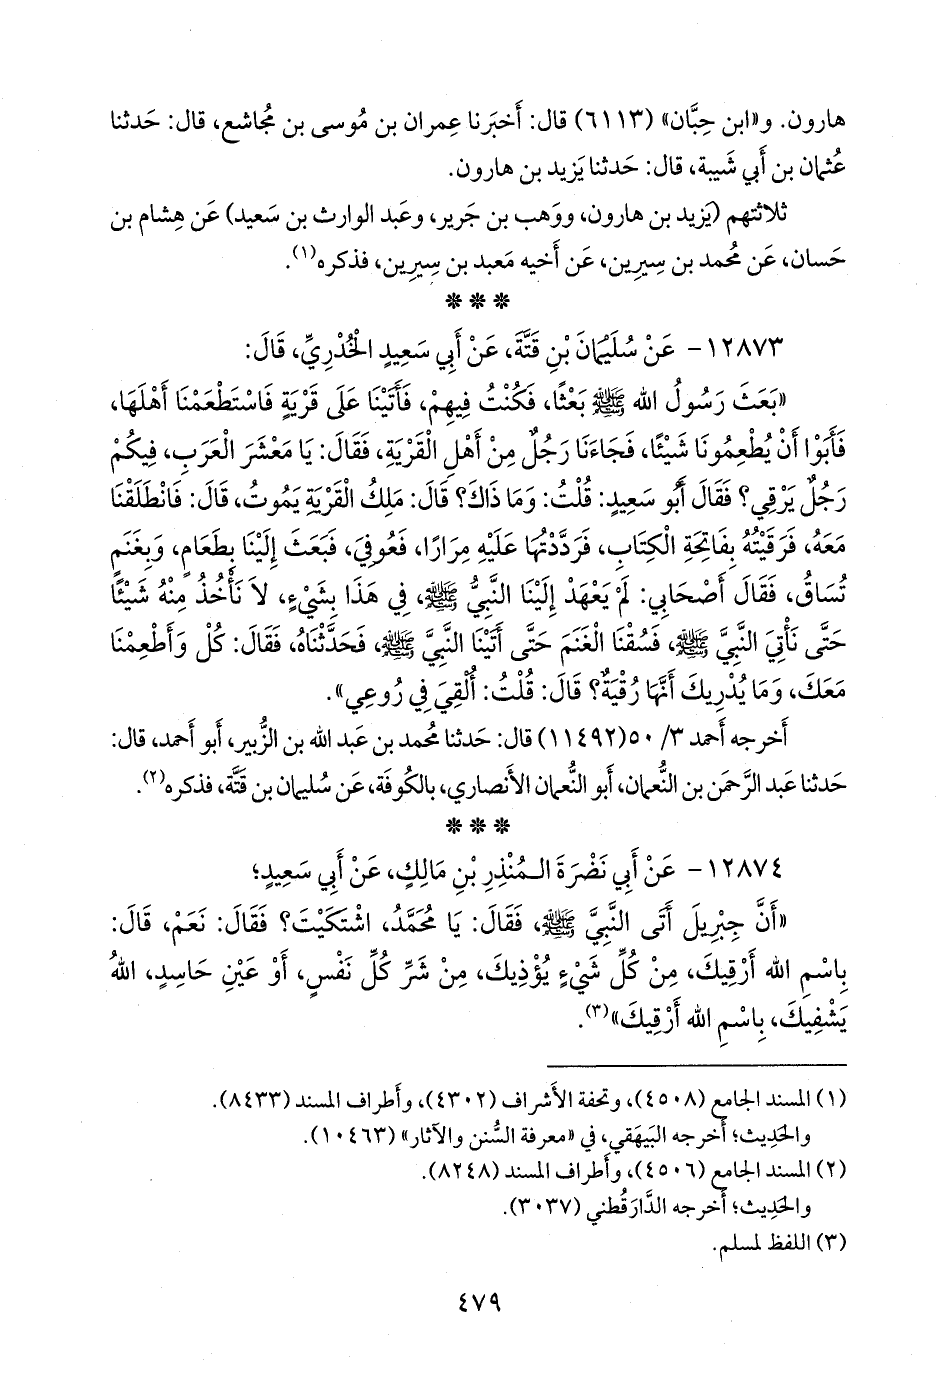 هارون. و«ابن حِبَّان» (٦١١٣) قال: أَخبَرنا عِمران بن مُوسى بن مُجاشع، قال: حَدثنا
عُثمان بن أَبي شَيبة، قال: حَدثنا يَزيد بن هارون.
ثلاثتهم (يَزيد بن هارون، ووَهب بن جَرير، وعَبد الوارث بن سَعيد) عَن هِشام بن
حَسان، عَن مُحمد بن سِيرِين، عَن أَخيه مَعبد بن سِيرِين، فذكره(١).
* * *
١٢٨٧٣- عَنْ سُلَيْمَانَ بْنِ قَتَّةَ، عَنْ أَبِي سَعِيدٍ الْخُدْرِيِّ، قَالَ:
«بَعَثَ رَسُولُ الله ﷺ بَعْثًا، فَكُنْتُ فِيهِمْ، فَأَتَيْنَا عَلَى قَرْيَةٍ فَاسْتَطْعَمْنَا أَهْلَهَا،
فَأَبَوْا أَنْ يُطْعِمُونَا شَيْئًا، فَجَاءَنَا رَجُلٌ مِنْ أَهْلِ الْقَرْيَةِ، فَقَالَ: يَا مَعْشَرَ الْعَرَبِ، فِيكُمْ
رَجُلٌ يَرْقِي؟ فَقَالَ أَبُو سَعِيدٍ: قُلْتُ: وَمَا ذَاكَ؟ قَالَ: مَلِكُ الْقَرْيَةِ يَمُوتُ، قَالَ: فَانْطَلَقْنَا
مَعَهُ، فَرَقَيْتُهُ بِفَاتِحَةِ الْكِتَابِ، فَرَدَّدْتُهَا عَلَيْهِ مِرَارًا، فَعُوفِيَ، فَبَعَثَ إِلَيْنَا بِطَعَامٍ، وَبِغَنَمٍ
تُسَاقُ، فَقَالَ أَصْحَابِي: لَمْ يَعْهَدْ إِلَيْنَا النَّبِيُّ ﷺ، فِي هَذَا بِشَيْءٍ، لاَ نَأْخُذُ مِنْهُ شَيْئًا
حَتَّى نَأْتِيَ النَّبِيَّ ﷺ، فَسُقْنَا الْغَنَمَ حَتَّى أَتَيْنَا النَّبِيَّ ﷺ، فَحَدَّثْنَاهُ، فَقَالَ: كُلْ وَأَطْعِمْنَا
مَعَكَ، وَمَا يُدْرِيكَ أَنَّهَا رُقْيَةٌ؟ قَالَ: قُلْتُ: أُلْقِيَ فِي رُوعِي».
أَخرجه أَحمد ٣/ ٥٠(١١٤٩٢) قال: حَدثنا مُحمد بن عَبد الله بن الزُّبير، أَبو أَحمد، قال:
حَدثنا عَبد الرَّحمَن بن النُّعمان، أَبو النُّعمان الأَنصاري، بالكُوفة، عَن سُليمان بن قَتَّة، فذكره(٢).
* * *
١٢٨٧٤- عَنْ أَبِي نَضْرَةَ الـمُنْذِرِ بْنِ مَالِكٍ، عَنْ أَبِي سَعِيدٍ؛
«أَنَّ جِبْرِيلَ أَتَى النَّبِيَّ ﷺ، فَقَالَ: يَا مُحَمَّدُ، اشْتَكَيْتَ؟ فَقَالَ: نَعَمْ، قَالَ:
بِاسْمِ الله أَرْقِيكَ، مِنْ كُلِّ شَيْءٍ يُؤْذِيكَ، مِنْ شَرِّ كُلِّ نَفْسٍ، أَوْ عَيْنِ حَاسِدٍ، اللهُ
يَشْفِيكَ، بِاسْمِ الله أَرْقِيكَ»(٣).
(١) المسند الجامع (٤٥٠٨)، وتحفة الأَشراف (٤٣٠٢)، وأَطراف المسند (٨٤٣٣).
والحَدِيث؛ أَخرجه البَيهَقي، في «معرفة السُّنن والآثار» (١٠٤٦٣).
(٢) المسند الجامع (٤٥٠٦)، وأَطراف المسند (٨٢٤٨).
والحَدِيث؛ أَخرجه الدَّارَقُطني (٣٠٣٧).
(٣) اللفظ لمسلم.
٤٧٩